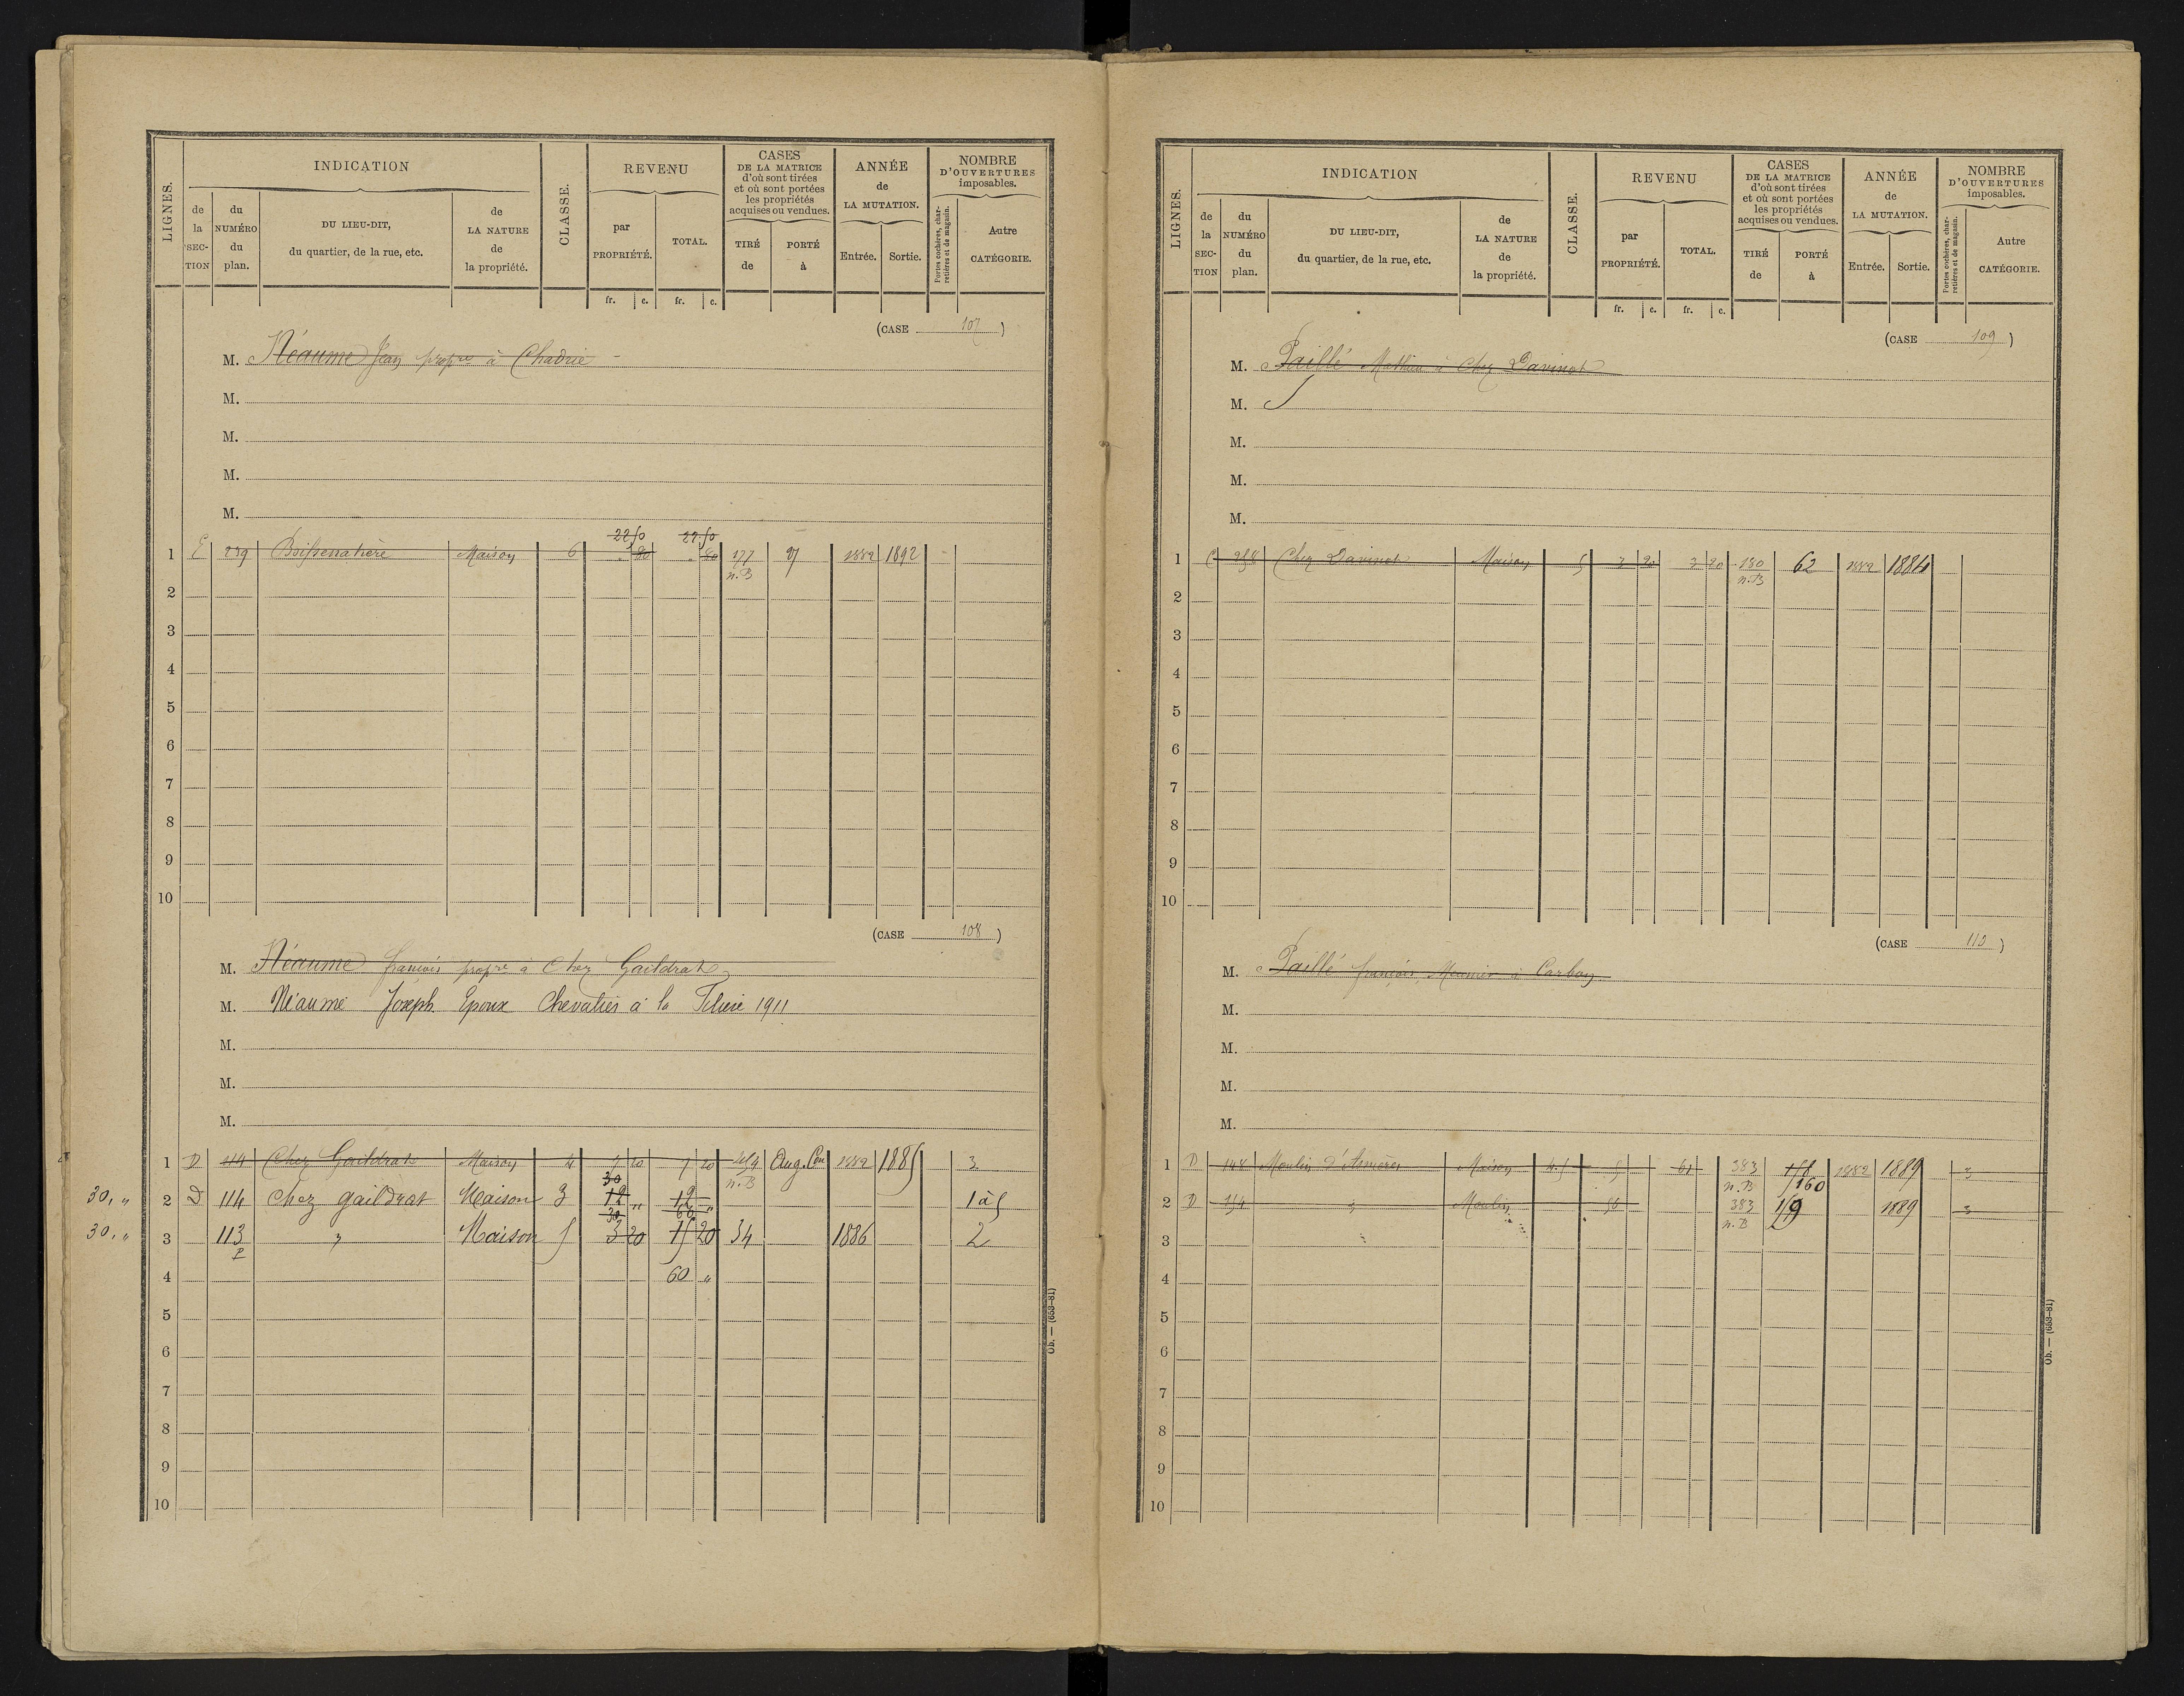 LIGNES.
INDICATION
de la SECTION
du NUMÉRO du plan.
DU LIEU-DIT, du quartier, de la rue, etc.
de LA NATURE de la propriété.
CLASSE.
REVENU
par PROPRIÉTÉ.
TOTAL.
fr. c. fr. c.
CASES DE LA MATRICE d'où sont tirées et où sont portées les propriétés acquises ou vendues.
TIRÉ de
PORTÉ à
ANNÉE de LA MUTATION.
Entrée. Sortie.
NOMBRE D'OUVERTURES imposables.
Portes cochères, charretières et de magasin.
Autre CATÉGORIE.
(CASE 107)
M. Néaume Jean propre à Chadrie
M.
M.
M.
M.
22 50 22 50
1 E 259 Maison 6 80 80 177 27 1882 1892
n.B
2
3
4
5
6
7
8
9
10
(CASE 108)
M. Néaume françois propre à Chez Gaildrat
M. Néaume Joseph Epoux Chevalier à la 1911
M.
M.
M.
1 D 114 Chez Gaildrat Maison 4 7 20 7 20 Aug. Con 1882 1885 3
n.B
30
30, " 2 D 114 Chez gaildrat Maison 3 12 " 12 " 1 à 5
30 60
30, " 3 113 " Maison 5 3 20 15 20 34 1886 2
P
4 60 "
5
6
7
8
9
10
Ob. — (653-81)
LIGNES.
INDICATION
de la SECTION
du NUMÉRO du plan.
DU LIEU-DIT, du quartier, de la rue, etc.
de LA NATURE de la propriété.
CLASSE.
REVENU
par PROPRIÉTÉ.
TOTAL.
fr. c. fr. c.
CASES DE LA MATRICE d'où sont tirées et où sont portées les propriétés acquises ou vendues.
TIRÉ de
PORTÉ à
ANNÉE de LA MUTATION.
Entrée. Sortie.
NOMBRE D'OUVERTURES imposables.
Portes cochères, charretières et de magasin.
Autre CATÉGORIE.
(CASE 109)
M. Paillé Mathieu à Chez Davinot
M.
M.
M.
M.
1 C 258 Chez Davinot Maison 5 3 20 3 20 180 62 1882 1884
n.B
2
3
4
5
6
7
8
9
10
(CASE 110)
M. Paillé françois, Meunier à
M.
M.
M.
M.
1 D 148 Moulin d'Asnières Maison 4 5 5 61 383 158 1882 1889 3
n.B 160
2 D 154 " Moulin 56 383 159 1889 3
n.B
3
4
5
6
7
8
9
10
Ob. — (653-81)